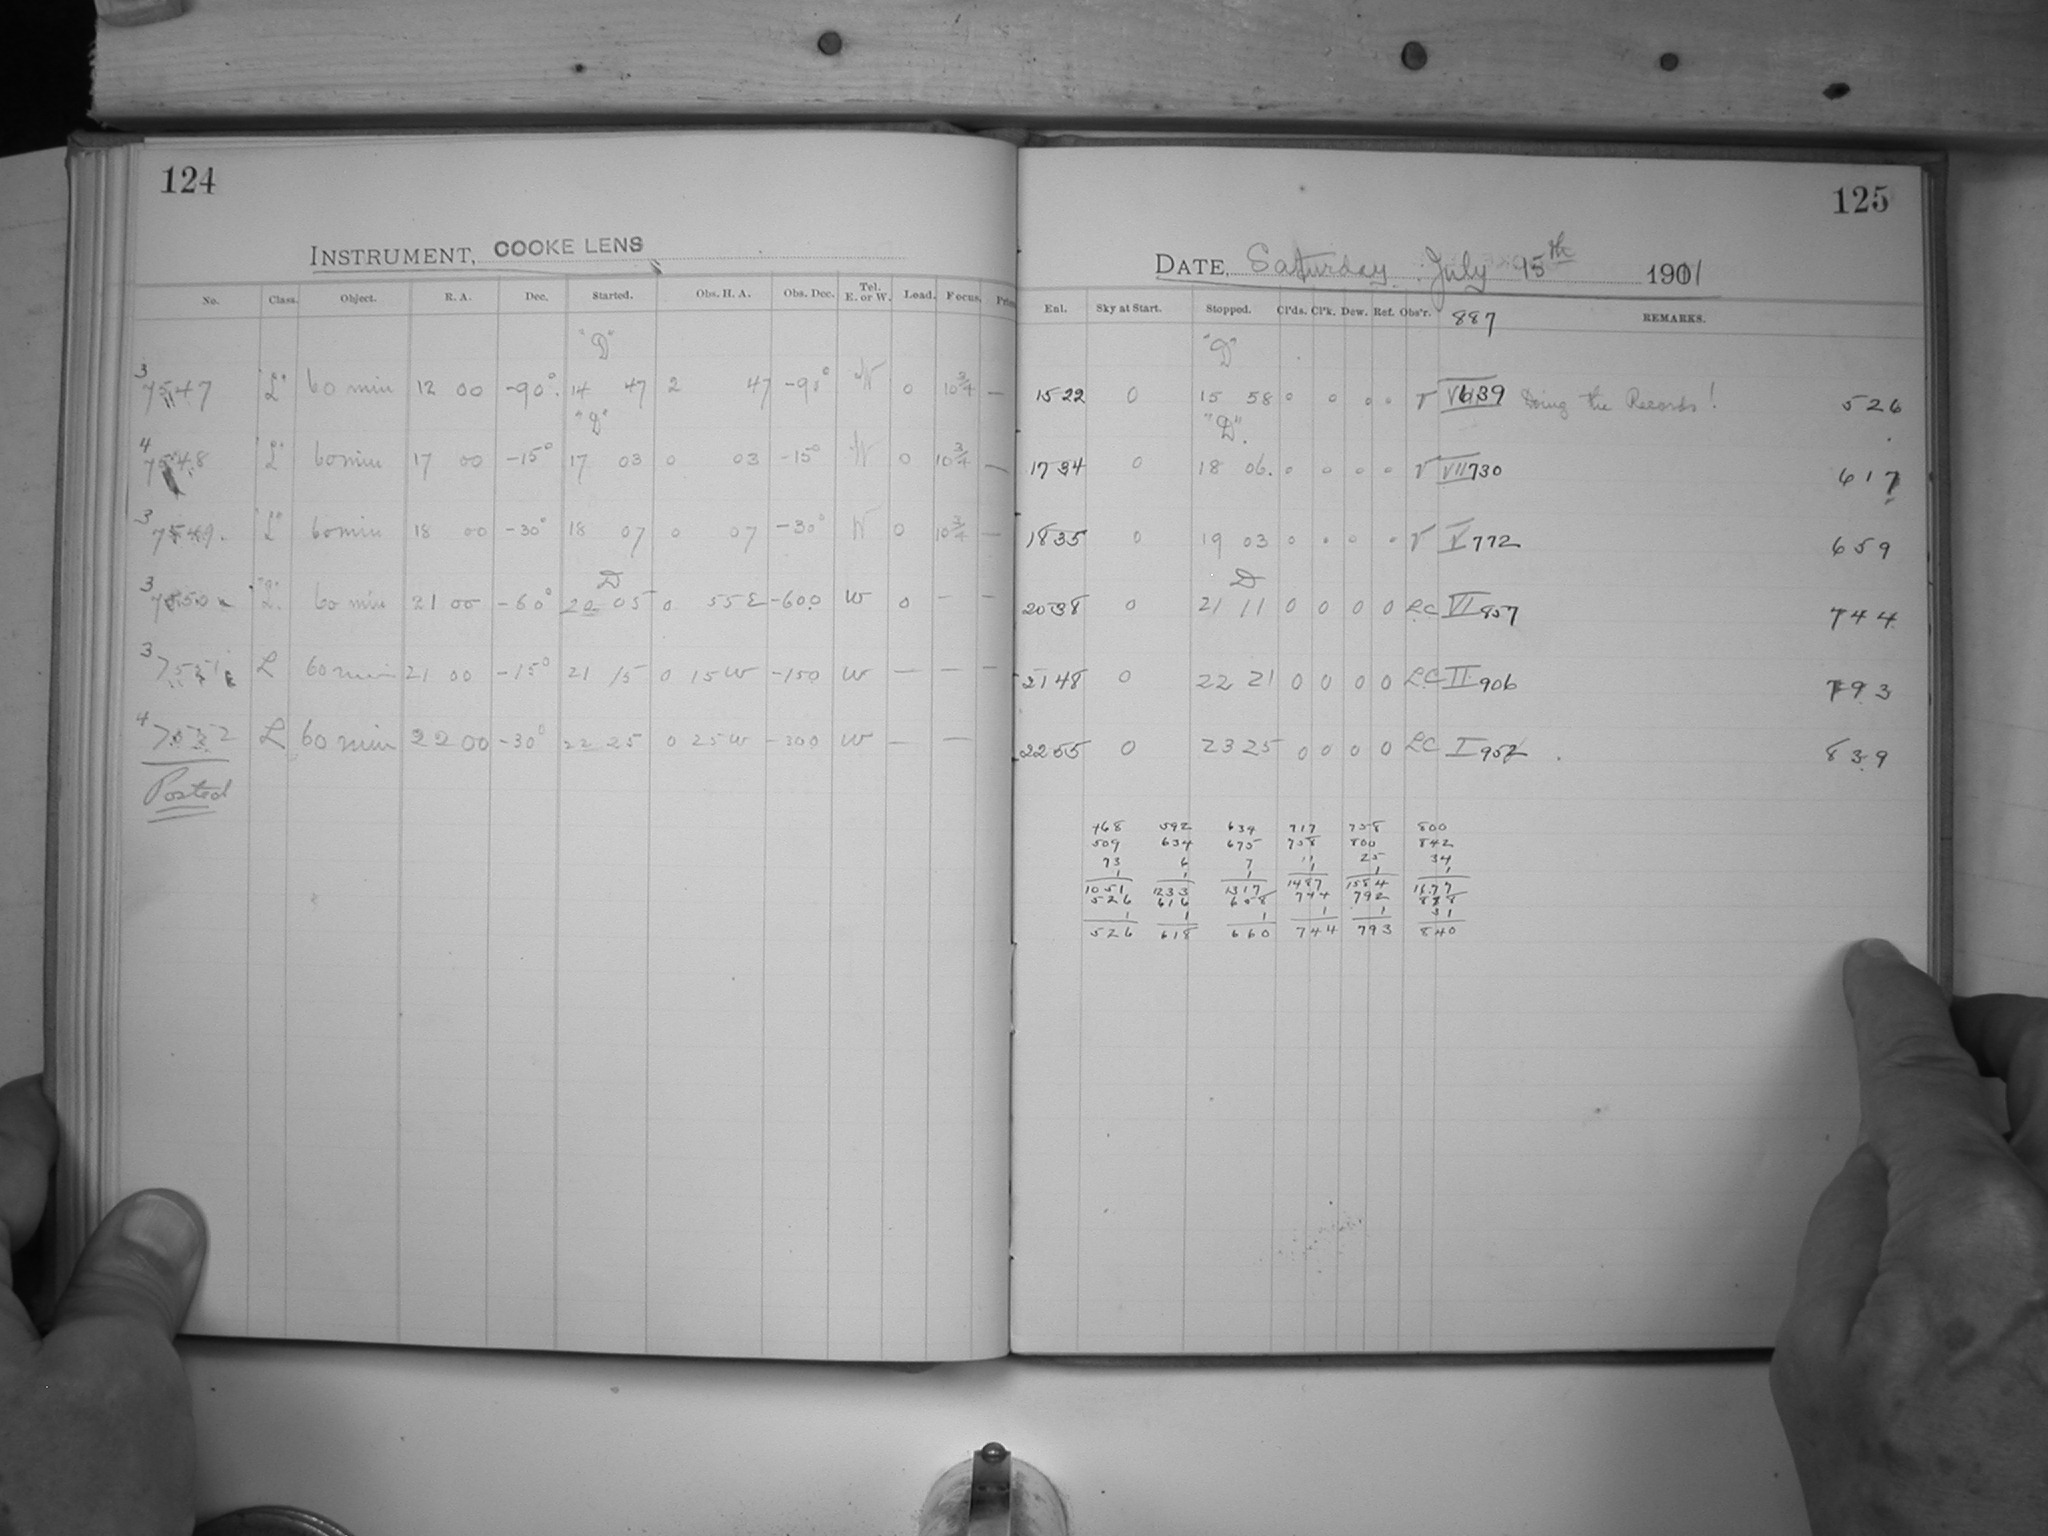 124
INSTRUMENT, COOKE LENS
No. Class. Object. R. A. Dec. Started. Obs. H. A. Obs. Dec. Tel. E. or W. Load. Focus.
"D"
3 7547 "L" 60 min 12 00 -90° 14 47 2 47 -90° W 0 10 3/4 —
"D"
4 7548 "L" 60 min 17 00 -15° 17 03 0 03 -15° W 0 10 3/4 —
3 7549. "L" 60 min 18 00 -30° 18 07 0 07 -30° W 0 10 3/4 —
D
3 7550 "L" 60 min 21 00 -60° 20 05 0 55 E -60.0 W 0 — —
3 7551 L 60 min 21 00 -15° 21 15 0 15 W -150 W — — —
4 7552 L 60 min 22 00 -30° 22 25 0 25 W -300 W — —
Posted
125
DATE, Saturday July 15th 1901
Enl. Sky at Start. Stopped. Cl'ds. Cl'k. Dew. Ref. Obs'r. REMARKS.
887
"D"
1522 0 15 58 0 0 0 0 V 639 Doing the Records! 526
"D".
1734 0 18 06. 0 0 0 0 V VII 730 617
1835 0 19 03 0 0 0 0 V V 772 659
D
2038 0 21 11 0 0 0 0 LC VI 857 744
2148 0 22 21 0 0 0 0 LC II 906 793
2255 0 23 25 0 0 0 0 LC I 952 839
468 592 634 717 758 800
509 634 675 758 800 842
73 6 7 11 25 34
1 1 1 1 1 1
1051 1233 1317 1487 1584 1677
526 616 658 744 792 838
1 1 1 1 1
526 618 660 744 793 840